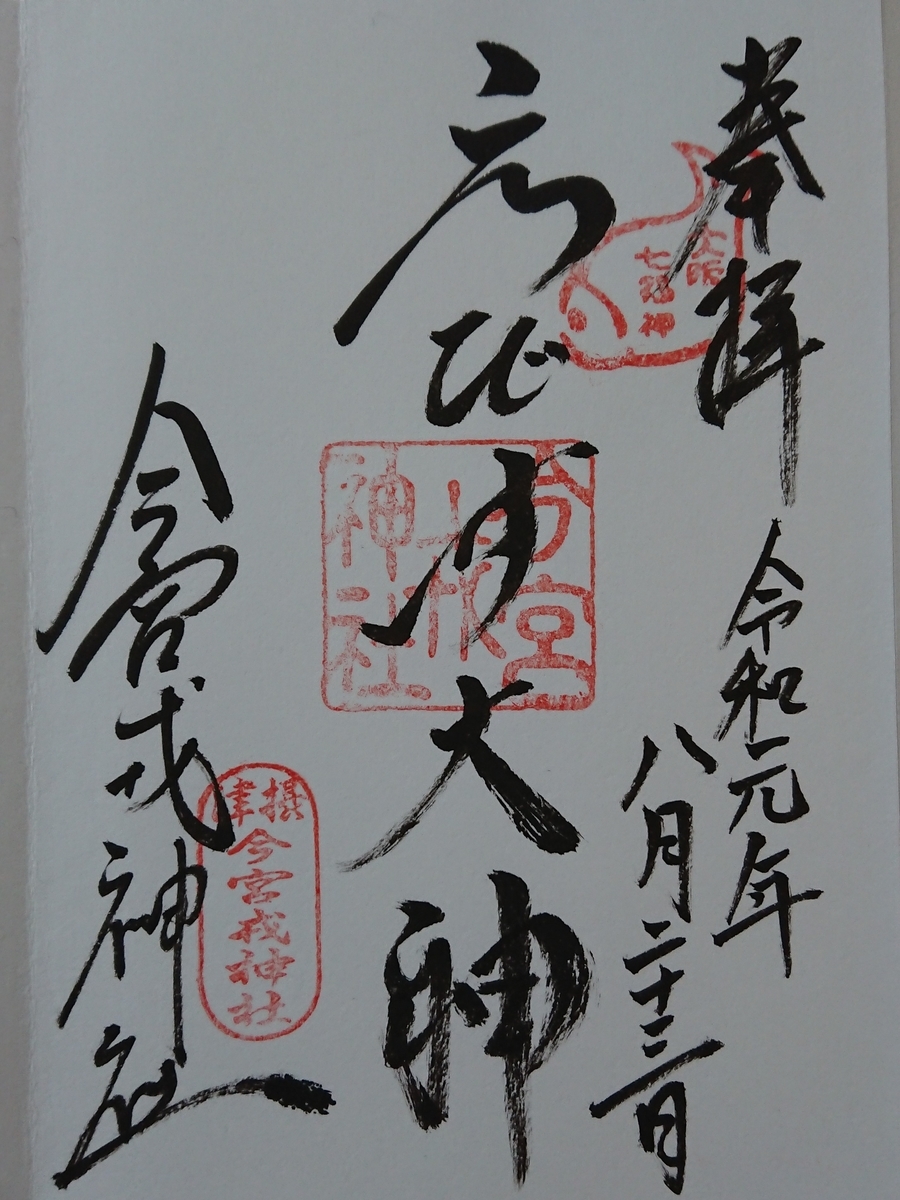 奉拝
令和元年
八月二十三日
大阪
七福神
ゑびす大神
今宮
戎
神社
今宮戎神社
摂津
今宮戎神社